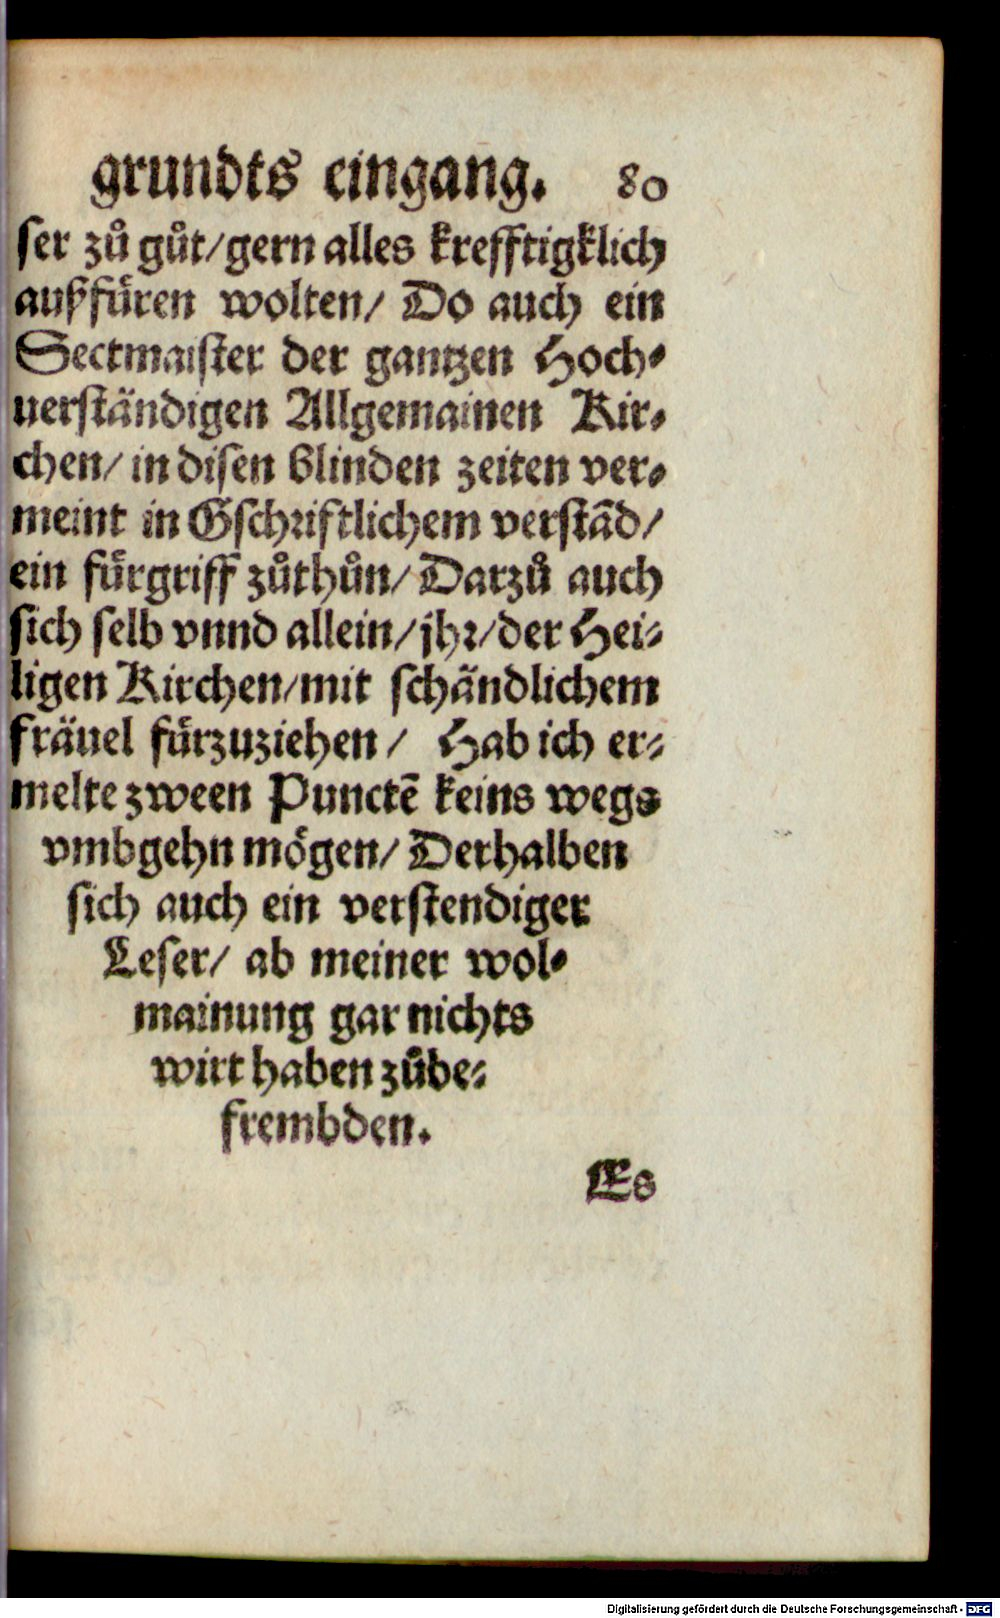 grundts eingang. 80
ser zů gůt/gern alles krefftigklich
außfüren wolten/ Do auch ein
Sectmaister der gantzen Hoch-
uerständigen Allgemainen Kir-
chen/ in disen blinden zeiten ver-
meint in Gschrifftlichem verstãd/
ein fürgriff zůthůn/ Darzů auch
sich selb vnnd allein/jhr/der Hei-
ligen Kirchen/mit schändlichem
fräuel fürzuziehen/ Hab ich er-
melte zween Punctẽ keins wegs
vmbgehn mögen/ Derhalben
sich auch ein verstendiger
Leser/ ab meiner wol-
mainung gar nichts
wirt haben zůbe-
frembden.
Es
Digitalisierung gefördert durch die Deutsche Forschungsgemeinschaft - DFG